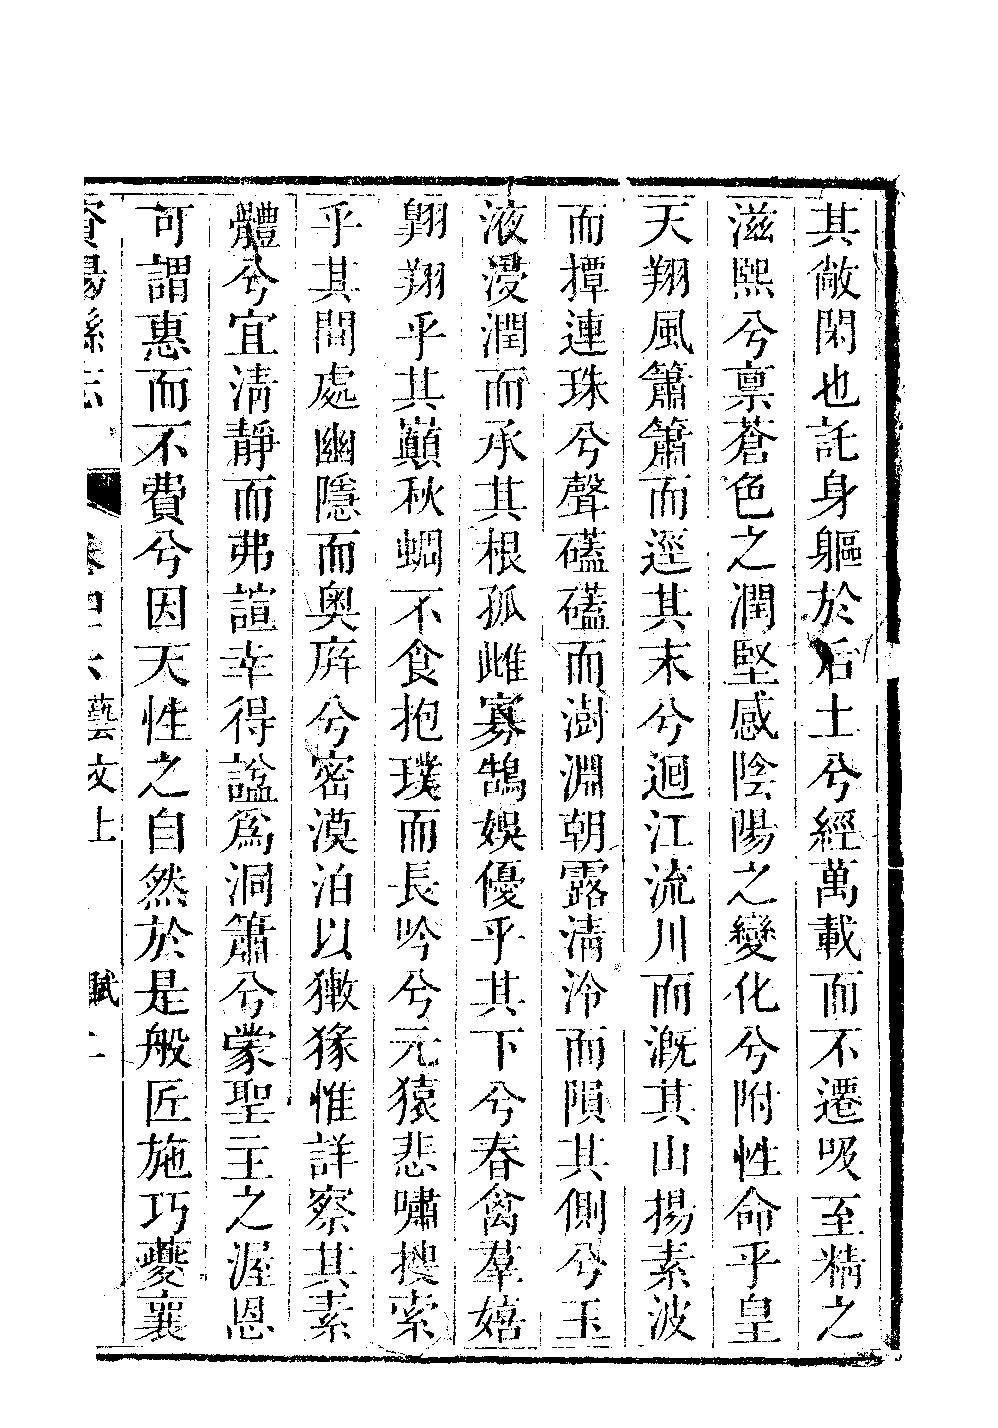 其敞閑也託身軀於后土兮經萬載而不遷吸至精之
滋熙兮禀蒼色之潤堅感陰陽之變化兮附性命乎皇
天翔風簫簫而逕其末兮迴江流川而溉其山揚素波
而撣連珠兮聲礚礚而澍淵朝露清泠而隕其側兮玉
液浸潤而承其根孤雌寡鵠娛優乎其下兮春禽羣嬉
翺翔乎其巔秋蜩不食抱璞而長吟兮元猿悲嘯搜索
乎其間處幽隱而奥庰兮密漠泊以獙猭惟詳察其素
體兮宜清靜而弗諠幸得諡爲洞簫兮蒙聖主之渥恩
可謂惠而不費兮因天性之自然於是般匠施巧夔襄
資陽縣志 卷四 藝文上 賦